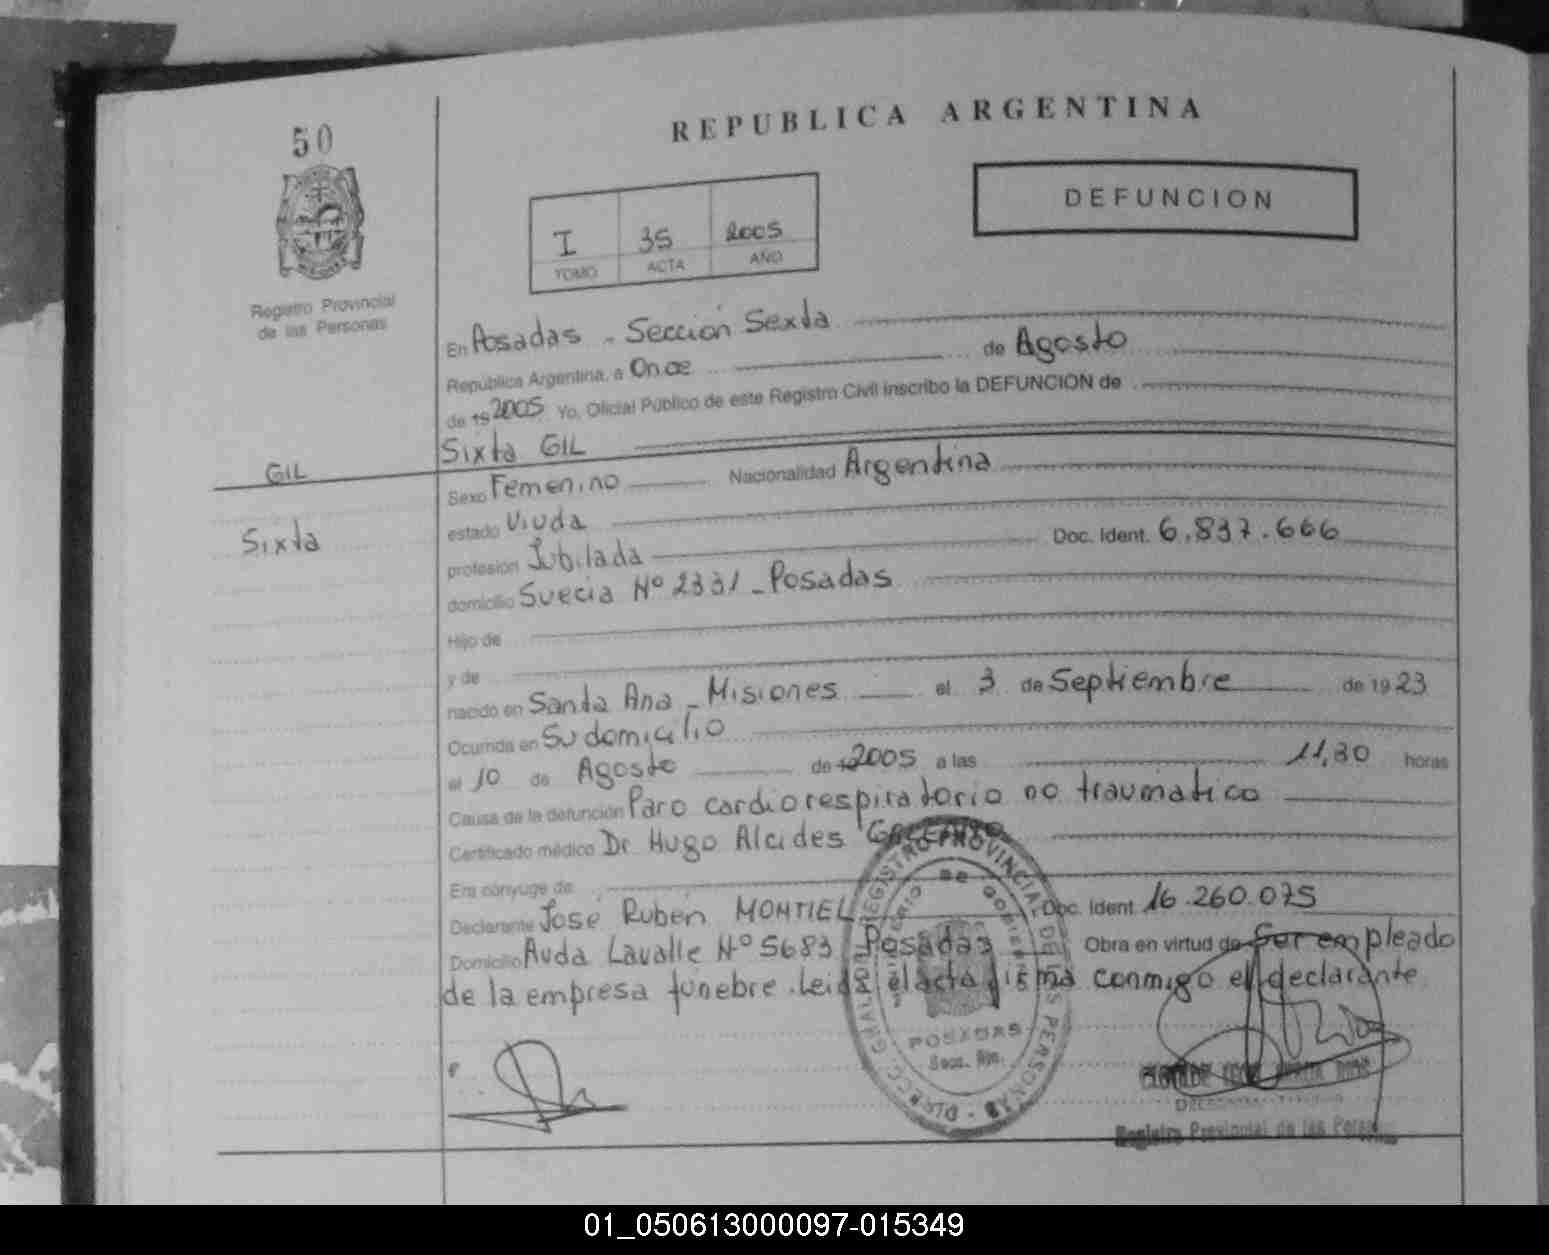 50
REPUBLICA ARGENTINA
DEFUNCION
I 35 2005
TOMO ACTA AÑO
Registro Provincial
de las Personas
En Posadas - Sección Sexta
República Argentina, a Once de Agosto
de 19 2005 Yo, Oficial Público de este Registro Civil inscribo la DEFUNCION de
Sixta GIL
GIL
Sexo Femenino Nacionalidad Argentina
Sixta
estado Viuda
profesión Jubilada Doc. Ident. 6.837.666
domicilio Suecia Nº 2331 - Posadas
Hijo de
y de
nacido en Santa Ana - Misiones el 3 de Septiembre de 1923
Ocurrida en Su domicilio
el 10 de Agosto de 2005 a las 11,30 horas
Causa de la defunción Paro cardiorespiratorio no traumatico
Certificado médico Dr Hugo Alcides
Era cónyuge de
Declarante José Ruben MONTIEL Doc. Ident. 16.260.075
Domicilio Avda Lavalle Nº 5683 Posadas Obra en virtud de Ser empleado
de la empresa funebre. Leida el acta firma conmigo el declarante
REGISTRO PROVINCIAL DE LAS PERSONAS
POSADAS
Registro Provincial de las Personas
01_050613000097-015349